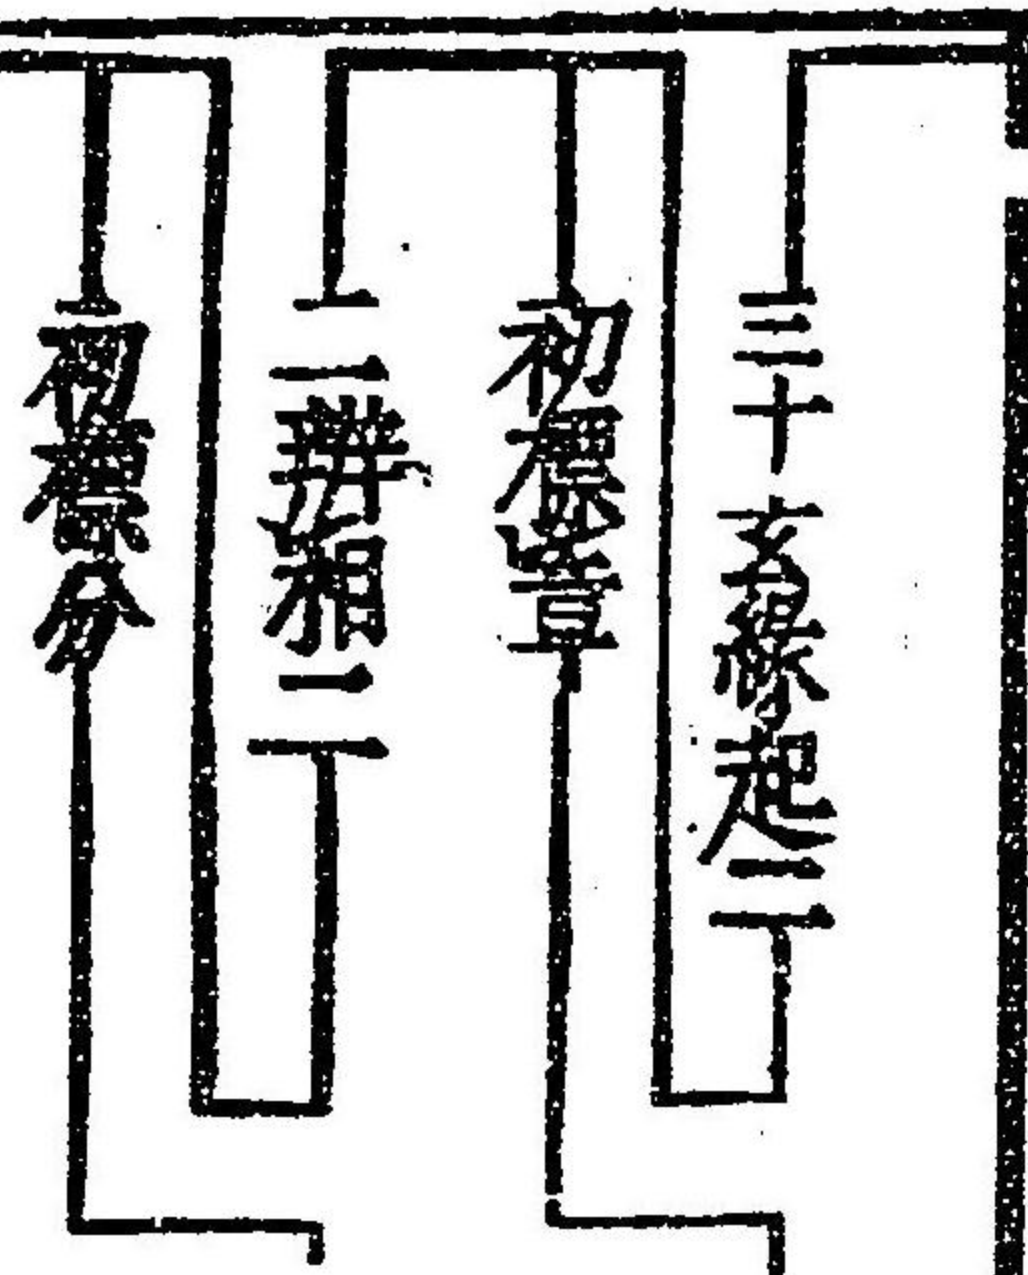 三十玄緣起二
初標章
二辨相二
初標分